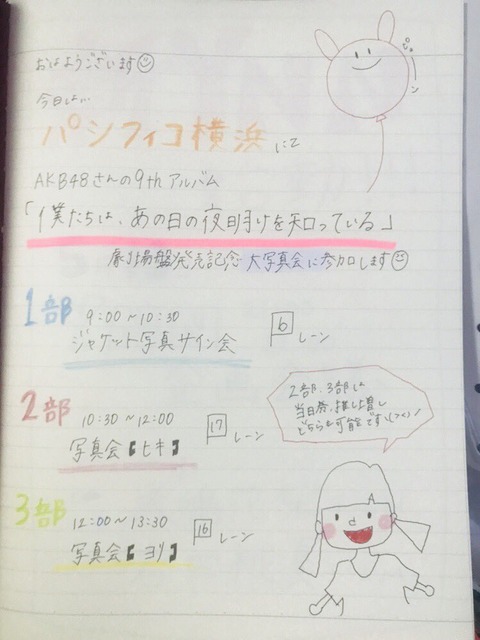 おはようございます
今日は…
パシフィコ横浜にて
AKB48さんの9thアルバム
「僕たちは、あの日の夜明けを知っている」
劇場盤発売記念 大写真会に参加します
1部 9:00~10:30
ジャケット写真サイン会
6 レーン
2部 10:30~12:00
写真会【ヒキ】
17 レーン
3部 12:00~13:30
写真会【ヨリ】
16 レーン
ぴゅーン
2部、3部は
当日券、推し増し
どちらも可能です